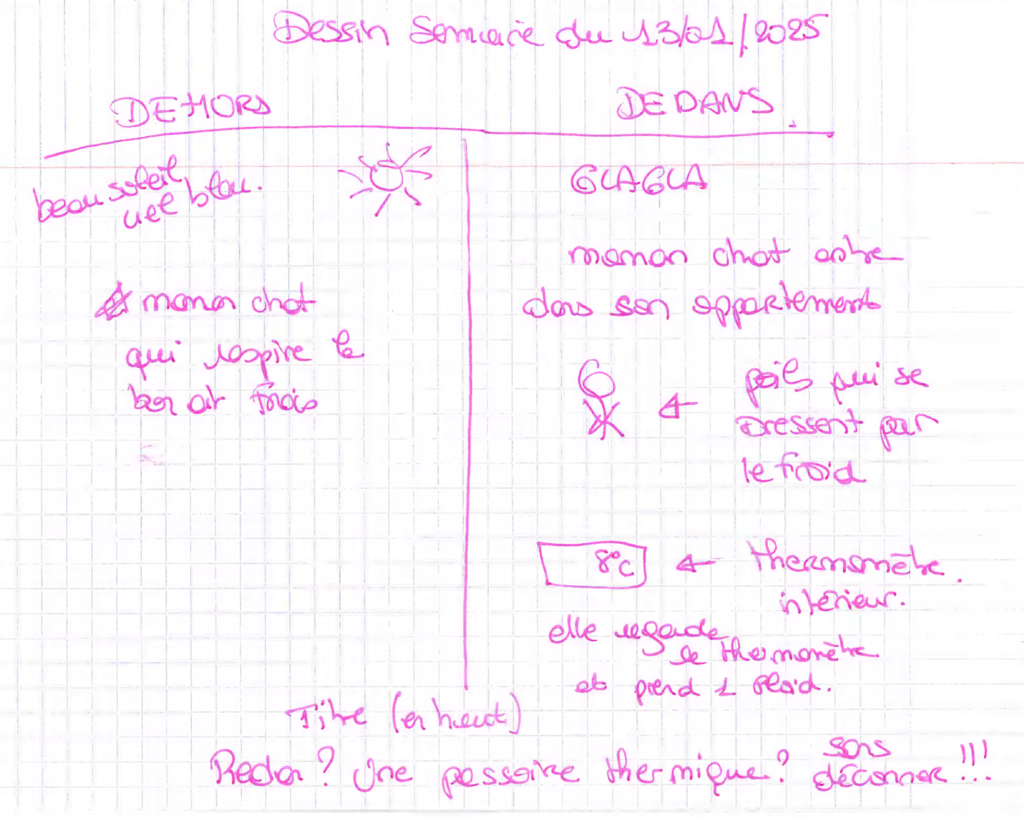 Dessin Semaine du 13/01/2025
DEHORS
DEDANS.
beau soleil,
ciel bleu.
maman chat
qui respire le
bon air frais
GLAGLA
maman chat entre
dans son appartement
poils qui se
dressent par
le froid
8°C
thermomètre
intérieur.
elle regarde
le thermomètre
et prend 1 plaid.
Titre (en haut)
Redon? Une passoire thermique? sans
déconner!!!